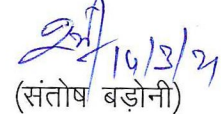 14/3/21
(संतोष बड़ोनी)